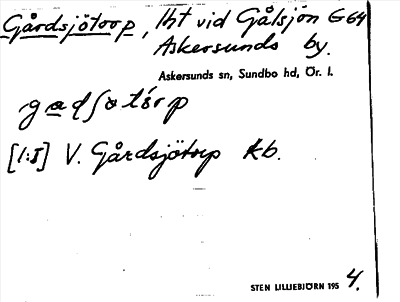 Gårdsjötorp, lht vid Gålsjön G64
Askersunds by.
Askersunds sn, Sundbo hd, Ör. l.
[1:I] V. Gårdsjötorp kb.
STEN LILLIEBJÖRN 195 4.